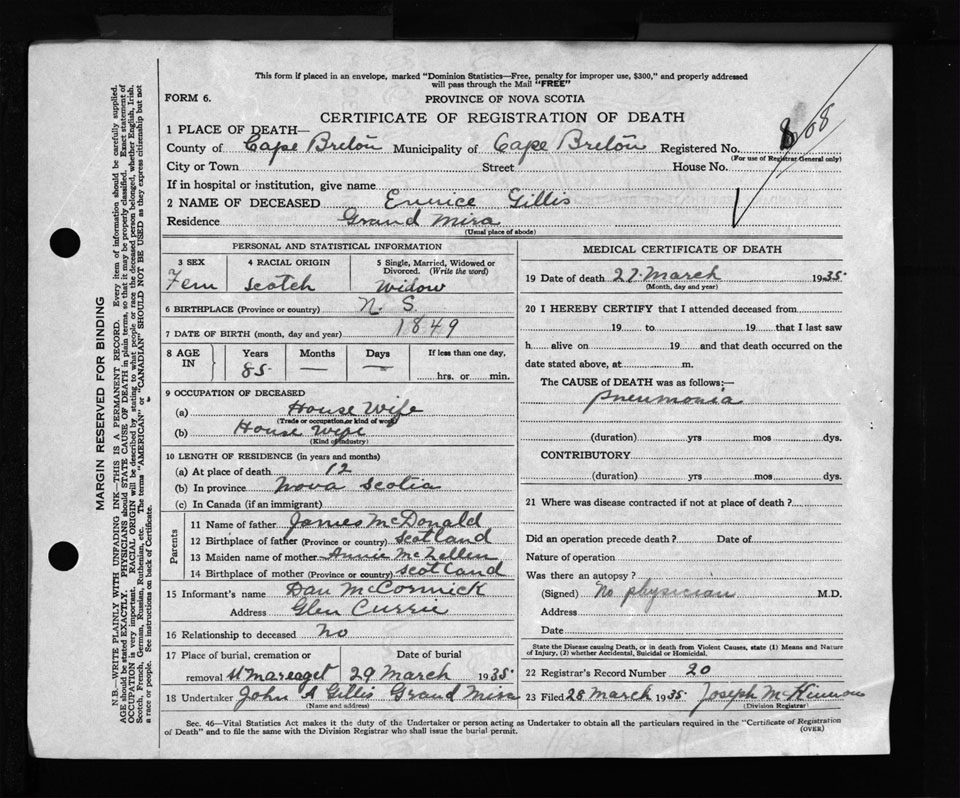 This form if placed in an envelope, marked "Dominion Statistics—Free, penalty for improper use, $300," and properly addressed
will pass through the Mail "FREE"
FORM 6.
PROVINCE OF NOVA SCOTIA
CERTIFICATE OF REGISTRATION OF DEATH
1 PLACE OF DEATH—
County of Cape Breton Municipality of Cape Breton Registered No.
(For use of Registrar General only)
City or Town Street House No.
If in hospital or institution, give name
2 NAME OF DECEASED Eunice Gillis
Residence Grand Mira
(Usual place of abode)
PERSONAL AND STATISTICAL INFORMATION
3 SEX 4 RACIAL ORIGIN 5 Single, Married, Widowed or
Divorced. (Write the word)
Fem Scotch Widow
6 BIRTHPLACE (Province or country) N. S.
7 DATE OF BIRTH (month, day and year) 1849
8 AGE IN Years Months Days If less than one day,
85 — — hrs. or min.
9 OCCUPATION OF DECEASED
(a) House Wife
(Trade or occupation, or kind of work)
(b) House Wife
(Kind of industry)
10 LENGTH OF RESIDENCE (in years and months)
(a) At place of death 12
(b) In province Nova Scotia
(c) In Canada (if an immigrant)
Parents
11 Name of father James McDonald
12 Birthplace of father (Province or country) Scotland
13 Maiden name of mother Annie
14 Birthplace of mother (Province or country) Scotland
15 Informant's name Dan McCormick
Address Glen Currie
16 Relationship to deceased No
17 Place of burial, cremation or Date of burial
removal St Mareaget 29 March 1935
18 Undertaker John A Gillis Grand Mira
(Name and address)
MEDICAL CERTIFICATE OF DEATH
19 Date of death 27 March 1935
(Month, day and year)
20 I HEREBY CERTIFY that I attended deceased from
19 to 19 that I last saw
h alive on 19 and that death occurred on the
date stated above, at m.
The CAUSE of DEATH was as follows:—
Pneumonia
(duration) yrs mos dys.
CONTRIBUTORY
(duration) yrs mos dys.
21 Where was disease contracted if not at place of death?
Did an operation precede death? Date of
Nature of operation
Was there an autopsy?
(Signed) No physician M.D.
Address
Date
State the Disease causing Death, or in death from Violent Causes, state (1) Means and Nature
of Injury, (2) whether Accidental, Suicidal or Homicidal.
22 Registrar's Record Number 20
23 Filed 28 March 1935 Joseph McKinnon
(Division Registrar)
Sec. 46—Vital Statistics Act makes it the duty of the Undertaker or person acting as Undertaker to obtain all the particulars required in the "Certificate of Registration
of Death" and to file the same with the Division Registrar who shall issue the burial permit.
(OVER)
MARGIN RESERVED FOR BINDING
N.B.—WRITE PLAINLY WITH UNFADING INK—THIS IS A PERMANENT RECORD. Every item of information should be carefully supplied.
AGE should be stated EXACTLY. PHYSICIANS should STATE CAUSE OF DEATH in plain terms, so that it may be properly classified. Exact statement of
OCCUPATION is very important. RACIAL ORIGIN will be described by stating to what people or race the deceased person belonged, whether English, Irish,
Scotch, French, German, Russian, Ruthenian, etc. The terms "AMERICAN" or "CANADIAN" SHOULD NOT BE USED as they express citizenship but not
a race or people. See instructions on back of Certificate.